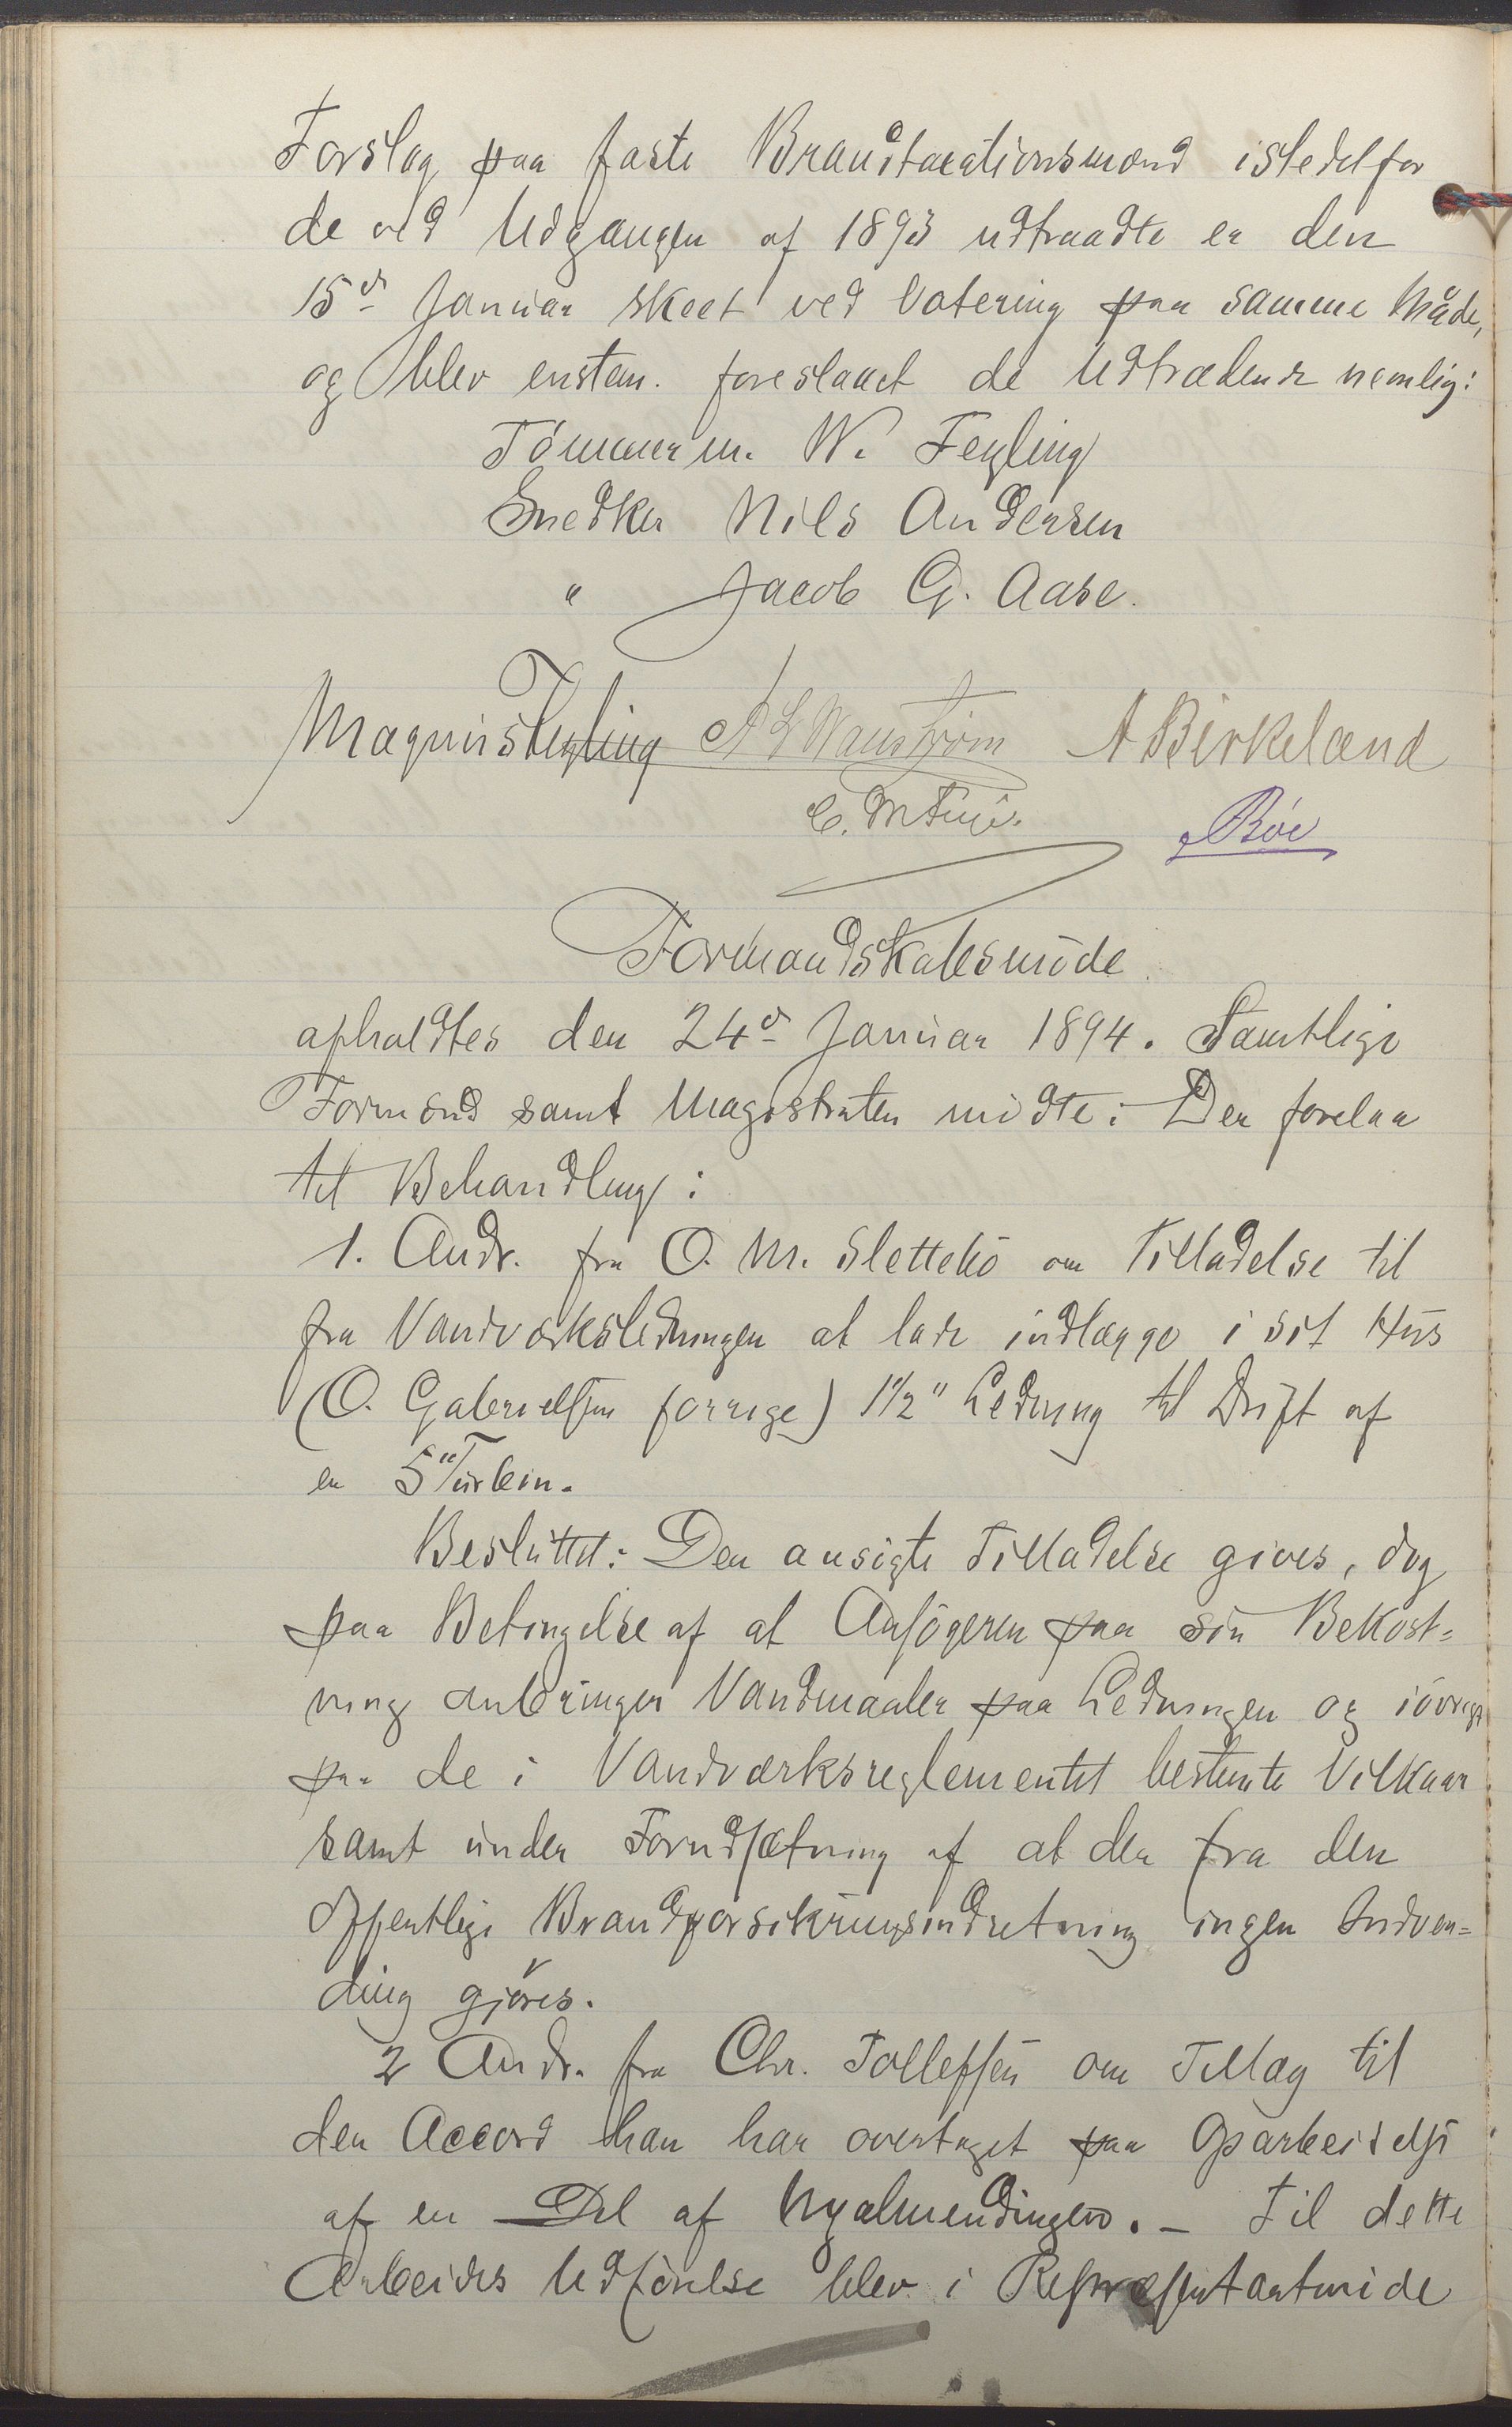 Forslag paa faste Brandtaxationsmænd istedetfor
de ved Udgangen af 1893 udtraadte er den
15de Januar skeet ved Votering paa samme Måde,
og blev enstem. foreslaaet de Udtrædende nemlig:
Tömmerm. W. Feyling
Snedker Nils Andersen
" Jacob G. Aase.
Magnus Feyling A L Wanström A Birkeland
Röe
Formandskabsmöde
apholdtes den 24de Januar 1894. Samtlige
Formænd samt Magistraten mödte: Der forelaa
til Behandling:
1. Andr. fra O. M. Slettebö om Tilladelse til
fra Vandværksledningen at lade indlægge i sit Hus
(O. Gabrielsens forrige) 1½" Ledning til Drift af
en 5" Turbin.
Besluttet: Den ansögte Tilladelse gives, dog
paa Betingelse af at Ansögeren paa sin Bekost=
ning anbringer Vandmaaler paa Ledningen og iövrigt
paa de i Vandværksreglementet bestemte Vilkaar
samt under Forudsætning af at der fra den
offentlige Brandforsikringsindretning ingen Indven=
ding gjöres.
2 Andr. fra Chr. Tollefsen om Tillæg til
den Accord han har overtaget paa Oparbeidelse
af en Del af Nyalmendingen. - Til dette
Arbeides Udförelse blev i Repræsentantmöde